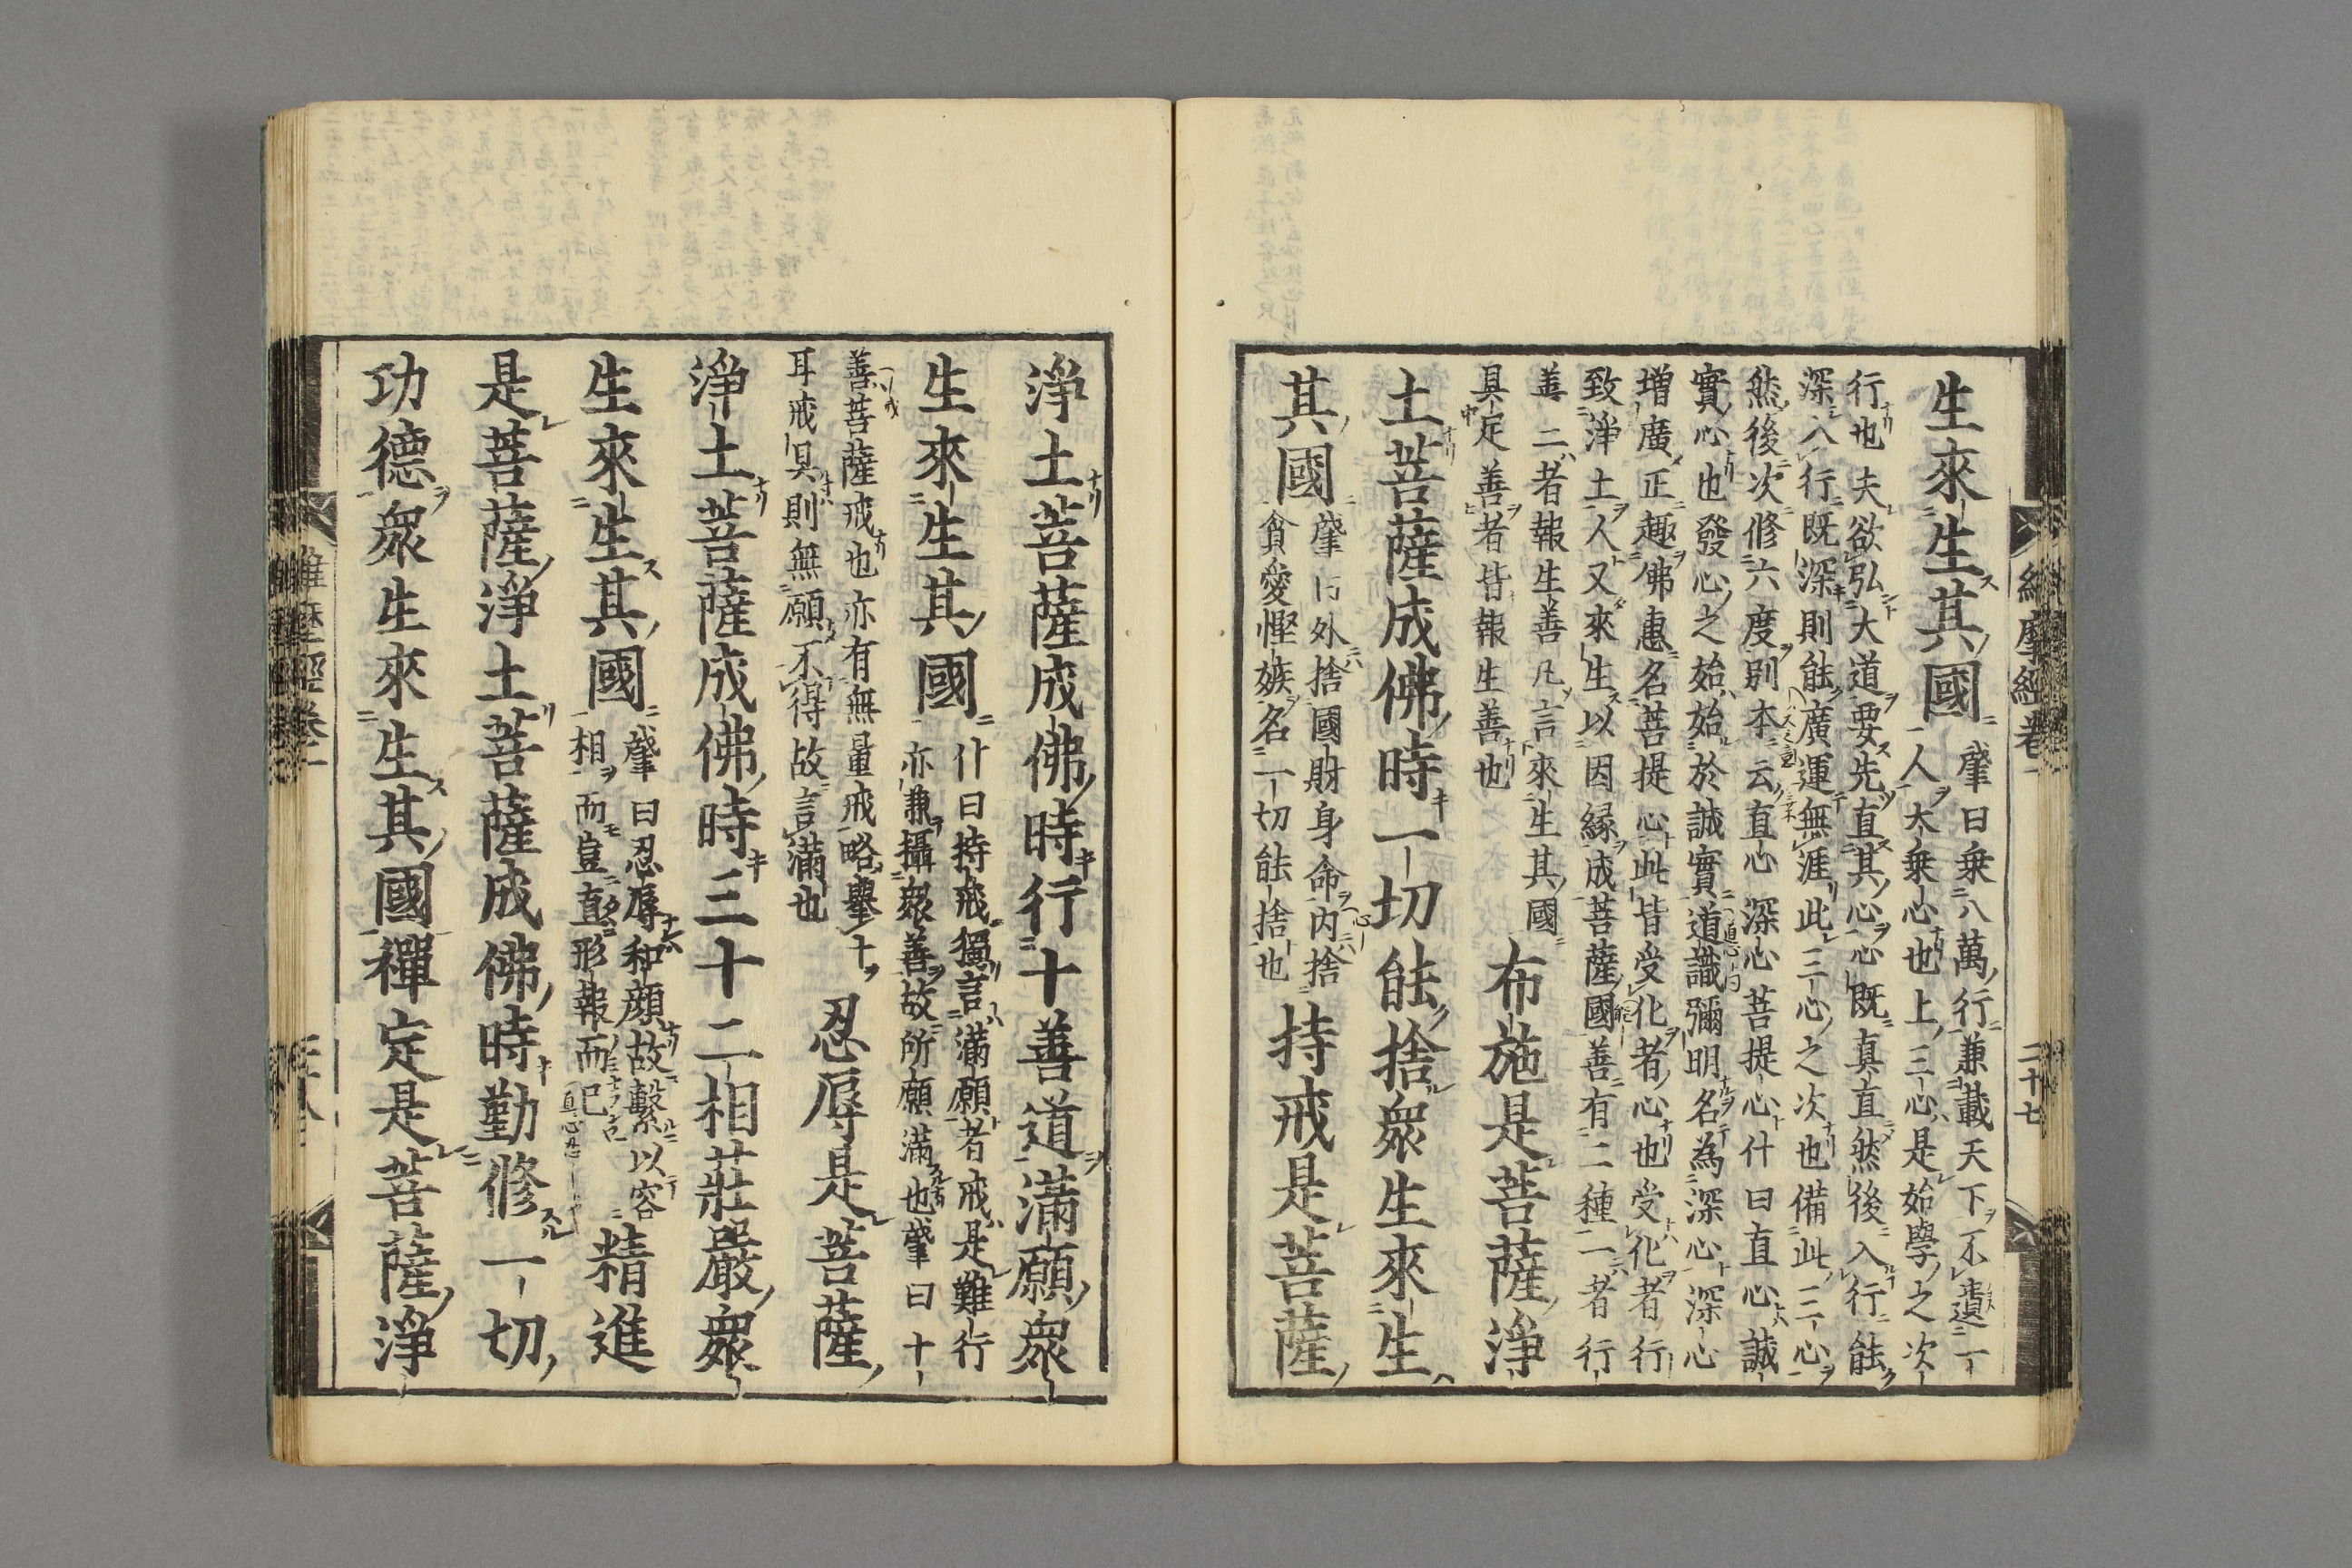 維摩經卷一
二十七
生來生其國
肇曰乗八萬行兼載天下不遺一
人大乗心也上三心是始學之次
行也夫欲弘大道要先直其心心既真直然後入行能
深入行既深則能廣運無涯此三心之次也備此三心
然後次修六度別本云直心深心菩提心什曰直心誠
實心也發心之始始於誠實道識彌明名為深心深心
増廣正趣佛惠名菩提心此皆受化者心也受化者行
致淨土人又來生以因縁成菩薩國善有二種一者行
善二者報生善凡言來生其國
具定善者皆報生善也
布施是菩薩淨
土菩薩成佛時一切能捨衆生來生
其國
肇曰外捨國財身命内捨
貪愛慳嫉名一切能捨也
持戒是菩薩
淨土菩薩成佛時行十善道滿願衆
生來生其國
什曰持戒獨言滿願者戒是難行
亦兼攝衆善故所願滿也肇曰十
善菩薩戒也亦有無量戒略舉十
耳戒具則無願不得故言滿也
忍辱是菩薩
淨土菩薩成佛時三十二相莊嚴衆
生來生其國
肇曰忍辱和顔故繫以容
相而豈直形報而已
精進
是菩薩淨土菩薩成佛時勤修一切
功德衆生來生其國禪定是菩薩淨
維摩經卷一